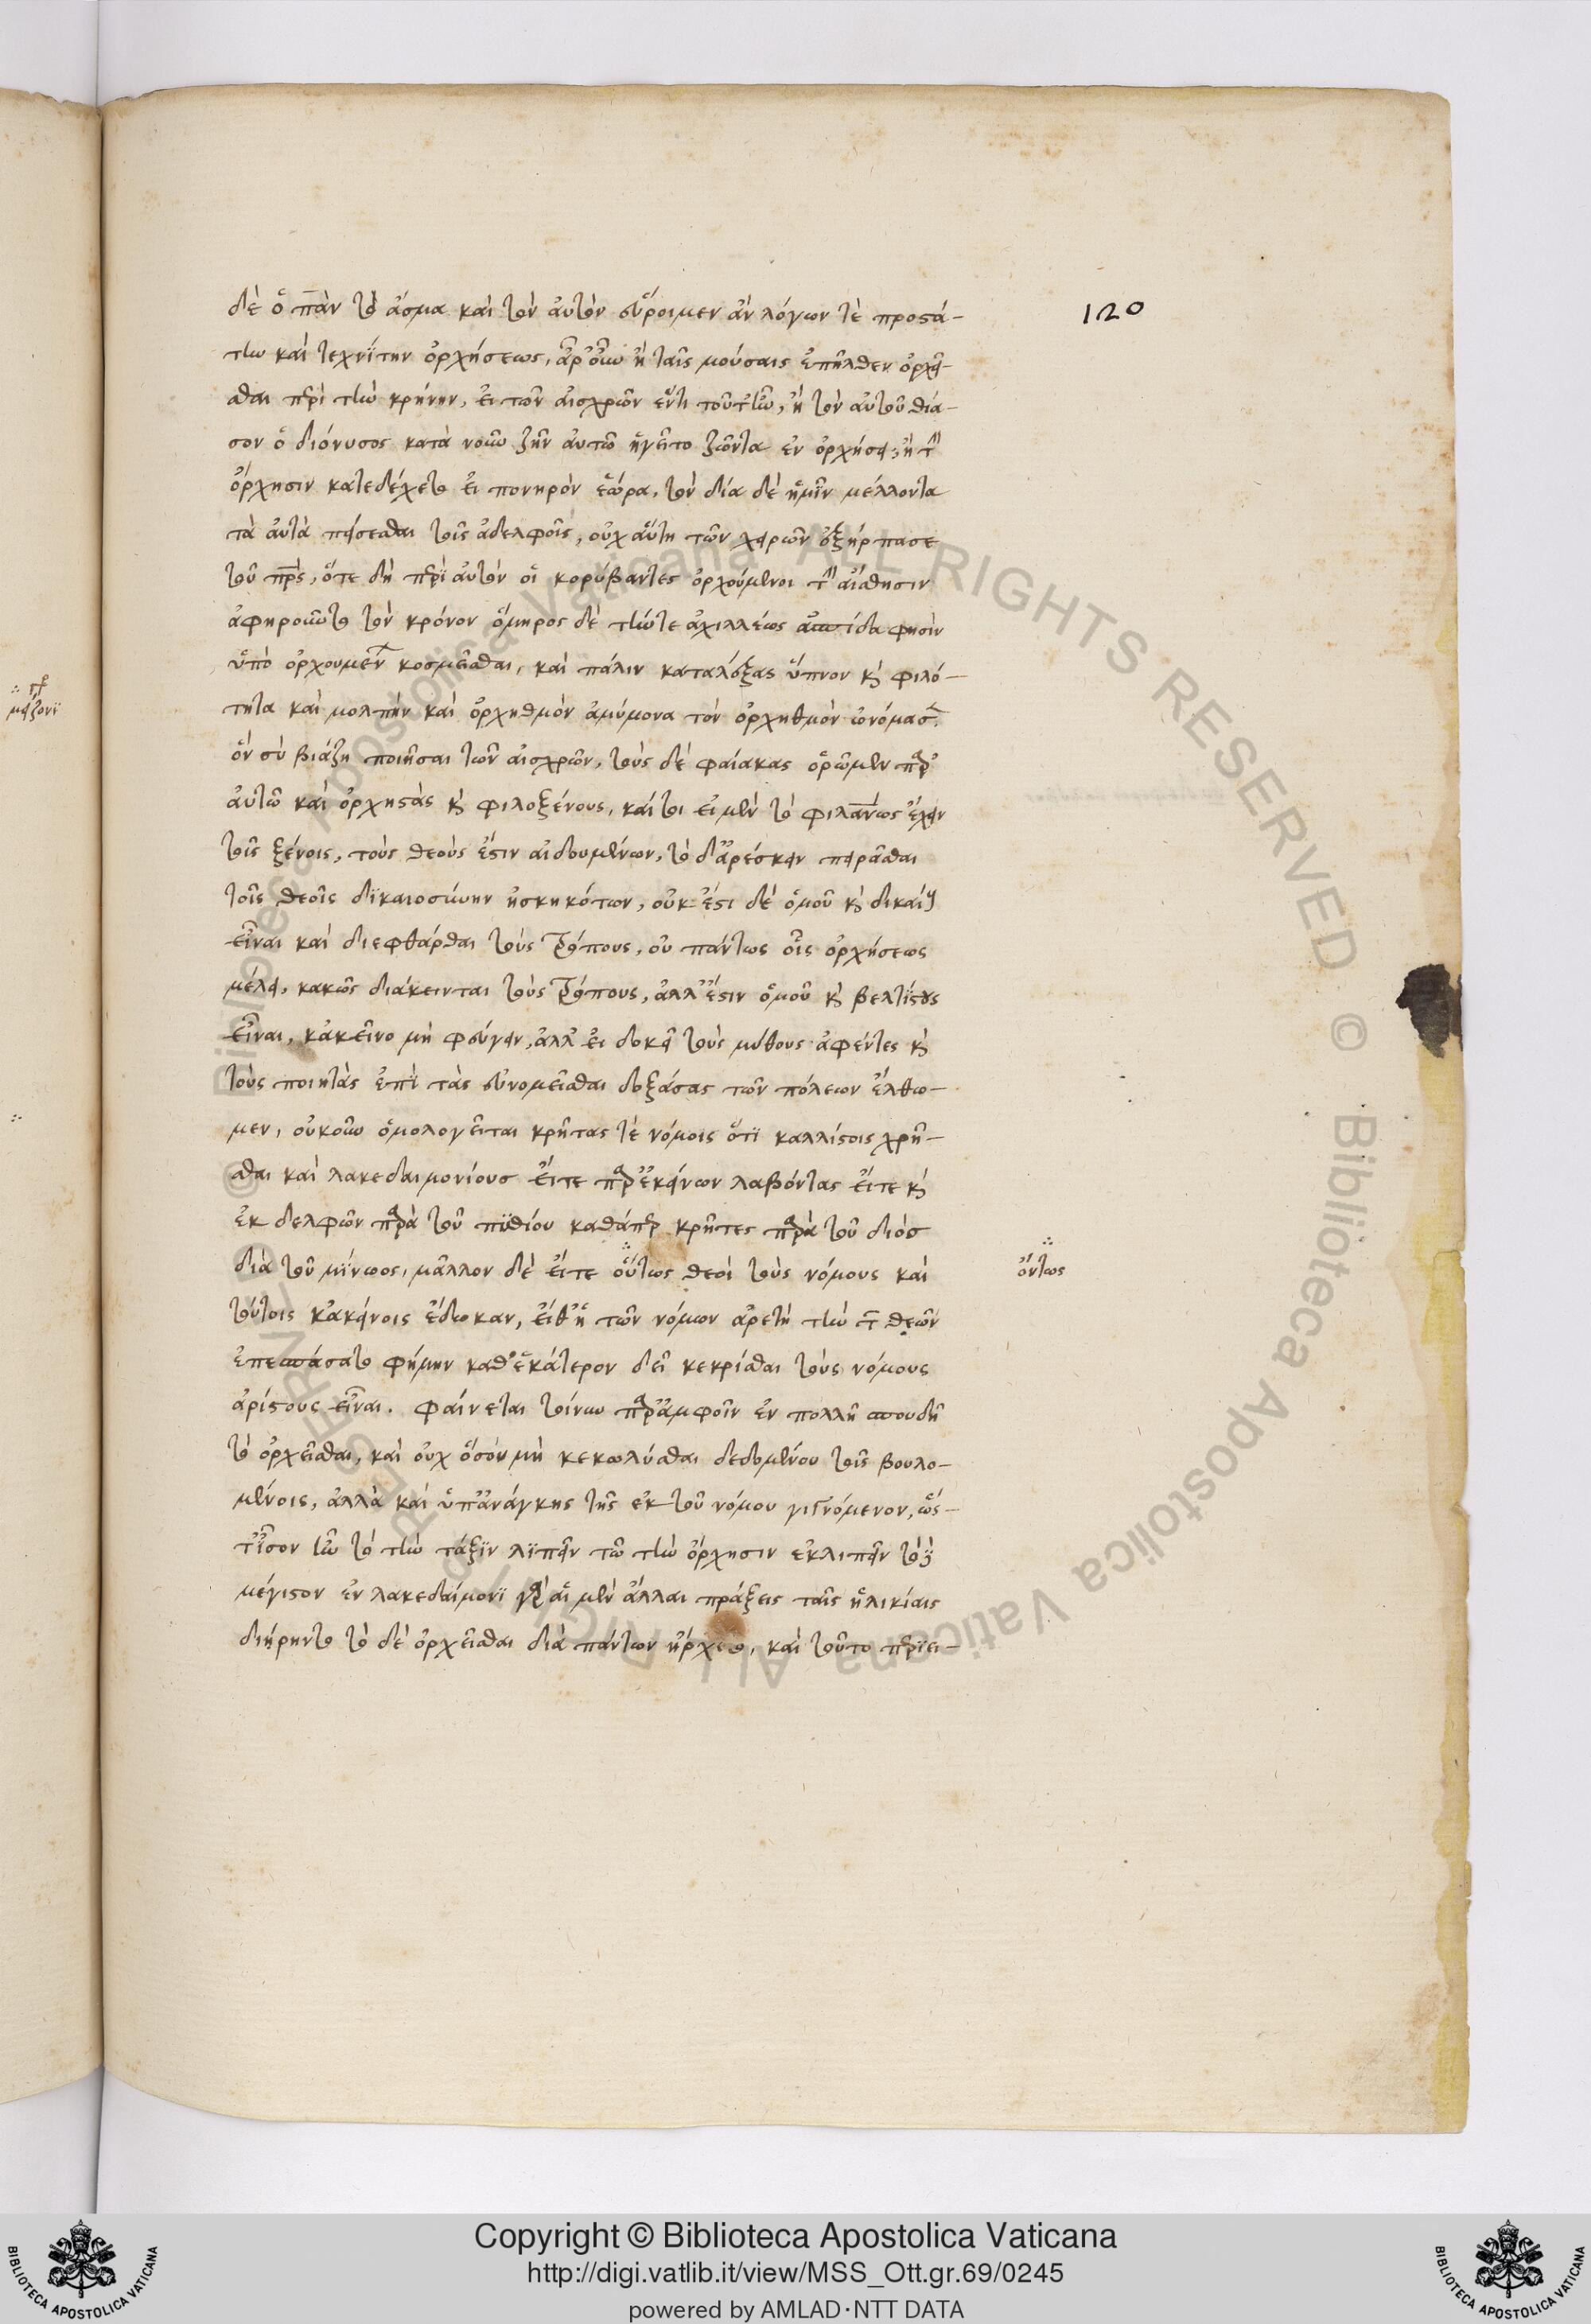 120
δὲ ὁ πᾶν τὸ ἆσμα καὶ τὸν αὐτὸν εὕροιμεν ἂν λόγων τὲ προστά-
την καὶ τεχνίτην ὀρχήσεως, ἆρ' οὖν ἢ ταῖς μούσαις ἐπῆλθεν ὀρχεῖ-
σθαι περὶ τὴν κρήνην, εἰ τῶν αἰσχρῶν ἕν τι τοῦτ' ἦν, ἢ τὸν αὐτοῦ θία-
σον ὁ διόνυσος κατὰ νοῦν ζῆν αὐτῶ ἡγεῖτο ζῶντα ἐν ὀρχήσει, ἢ τὴν
ὄρχησιν κατεδέχετο εἰ πονηρὸν ἑώρα, τὸν δία δὲ ἡμῖν μέλλοντα
τὰ αὐτὰ πείσεσθαι τοῖς ἀδελφοῖς, οὐχ αὕτη τῶν χειρῶν ἐξήρπασε
τοῦ πατρὸς, ὅτε δὴ περὶ αὐτὸν οἱ κορύβαντες ὀρχούμενοι τὴν αἴσθησιν
ἀφηροῦντο τὸν κρόνον ὅμηρος δὲ τήν τε ἀχιλλέως ἀσπίδα φησὶν
ὑπὸ ὀρχουμένων κοσμεῖσθαι, καὶ πάλιν καταλέξας ὕπνον καὶ φιλό-
τητα καὶ μολπὴν καὶ ὀρχηθμὸν ἀμύμονα τὸν ὀρχηθμὸν ὠνόμασεν.
ὃν σὺ βιάζη ποιῆσαι τῶν αἰσχρῶν, τοὺς δὲ φαίακας ὁρῶμεν παρ'
αὐτῶ καὶ ὀρχηστὰς καὶ φιλοξένους, καί τοι εἰ μὲν τὸ φιλανθρώπως ἔχειν
τοῖς ξένοις, τοὺς θεούς ἐστιν αἰδουμένων, τὸ δ' ἀρέσκειν πειρᾶσθαι
τοῖς θεοῖς δικαιοσύνην ἠσκηκότων, οὐκ ἔστι δὲ ὁμοῦ καὶ δικαίους
εἶναι καὶ διεφθάρθαι τοὺς τρόπους, οὐ πάντως οἷς ὀρχήσεως
μέλει, κακῶς διάκεινται τοὺς τρόπους, ἀλλ' ἔστιν ὁμοῦ καὶ βελτίστους
εἶναι, κἀκεῖνο μὴ φεύγειν, ἀλλ' εἰ δοκεῖ τοὺς μύθους ἀφέντες καὶ
τοὺς ποιητὰς ἐπὶ τὰς εὐνομεῖσθαι δοξάσας τῶν πόλεων ἔλθω-
μεν, οὐκοῦν ὁμολογεῖται κρῆτας τὲ νόμοις ὅτι καλλίστοις χρῆ-
σθαι καὶ λακεδαιμονίους εἴτε παρ' ἐκείνων λαβόντας εἴτε καὶ
ἐκ δελφῶν παρὰ τοῦ πυθίου καθάπερ κρῆτες παρὰ τοῦ διὸς
διὰ τοῦ μίνωος, μᾶλλον δὲ εἴτε οὕτως θεοὶ τοὺς νόμους καὶ
ὄντως
τούτοις κἀκείνοις ἔδωκαν, εἴθ' ἡ τῶν νόμων ἀρετὴ τὴν τῶν θεῶν
ἐπεσπάσατο φήμην καθ' ἑκάτερον δεῖ κεκρίσθαι τοὺς νόμους
ἀρίστους εἶναι. φαίνεται τοίνυν παρ' ἀμφοῖν ἐν πολλῆ σπουδῆ
τὸ ὀρχεῖσθαι, καὶ οὐχ ὅσον μὴ κεκωλύσθαι δεδομένου τοῖς βουλο-
μένοις, ἀλλὰ καὶ ὑπ' ἀνάγκης τῆς ἐκ τοῦ νόμου γιγνόμενον, ὥς-
τ' ἴσον ἦν τὸ τὴν τάξιν λιπεῖν τῶ τὴν ὄρχησιν ἐκλιπεῖν τὸ δὲ
μέγιστον ἐν λακεδαίμονι γὰρ αἱ μὲν ἄλλαι πράξεις ταῖς ἡλικίαις
διήρηντο τὸ δὲ ὀρχεῖσθαι διὰ πάντων ἤρχετο, καὶ τοῦτο περιει-
Copyright © Biblioteca Apostolica Vaticana
http://digi.vatlib.it/view/MSS_Ott.gr.69/0245
powered by AMLAD·NTT DATA